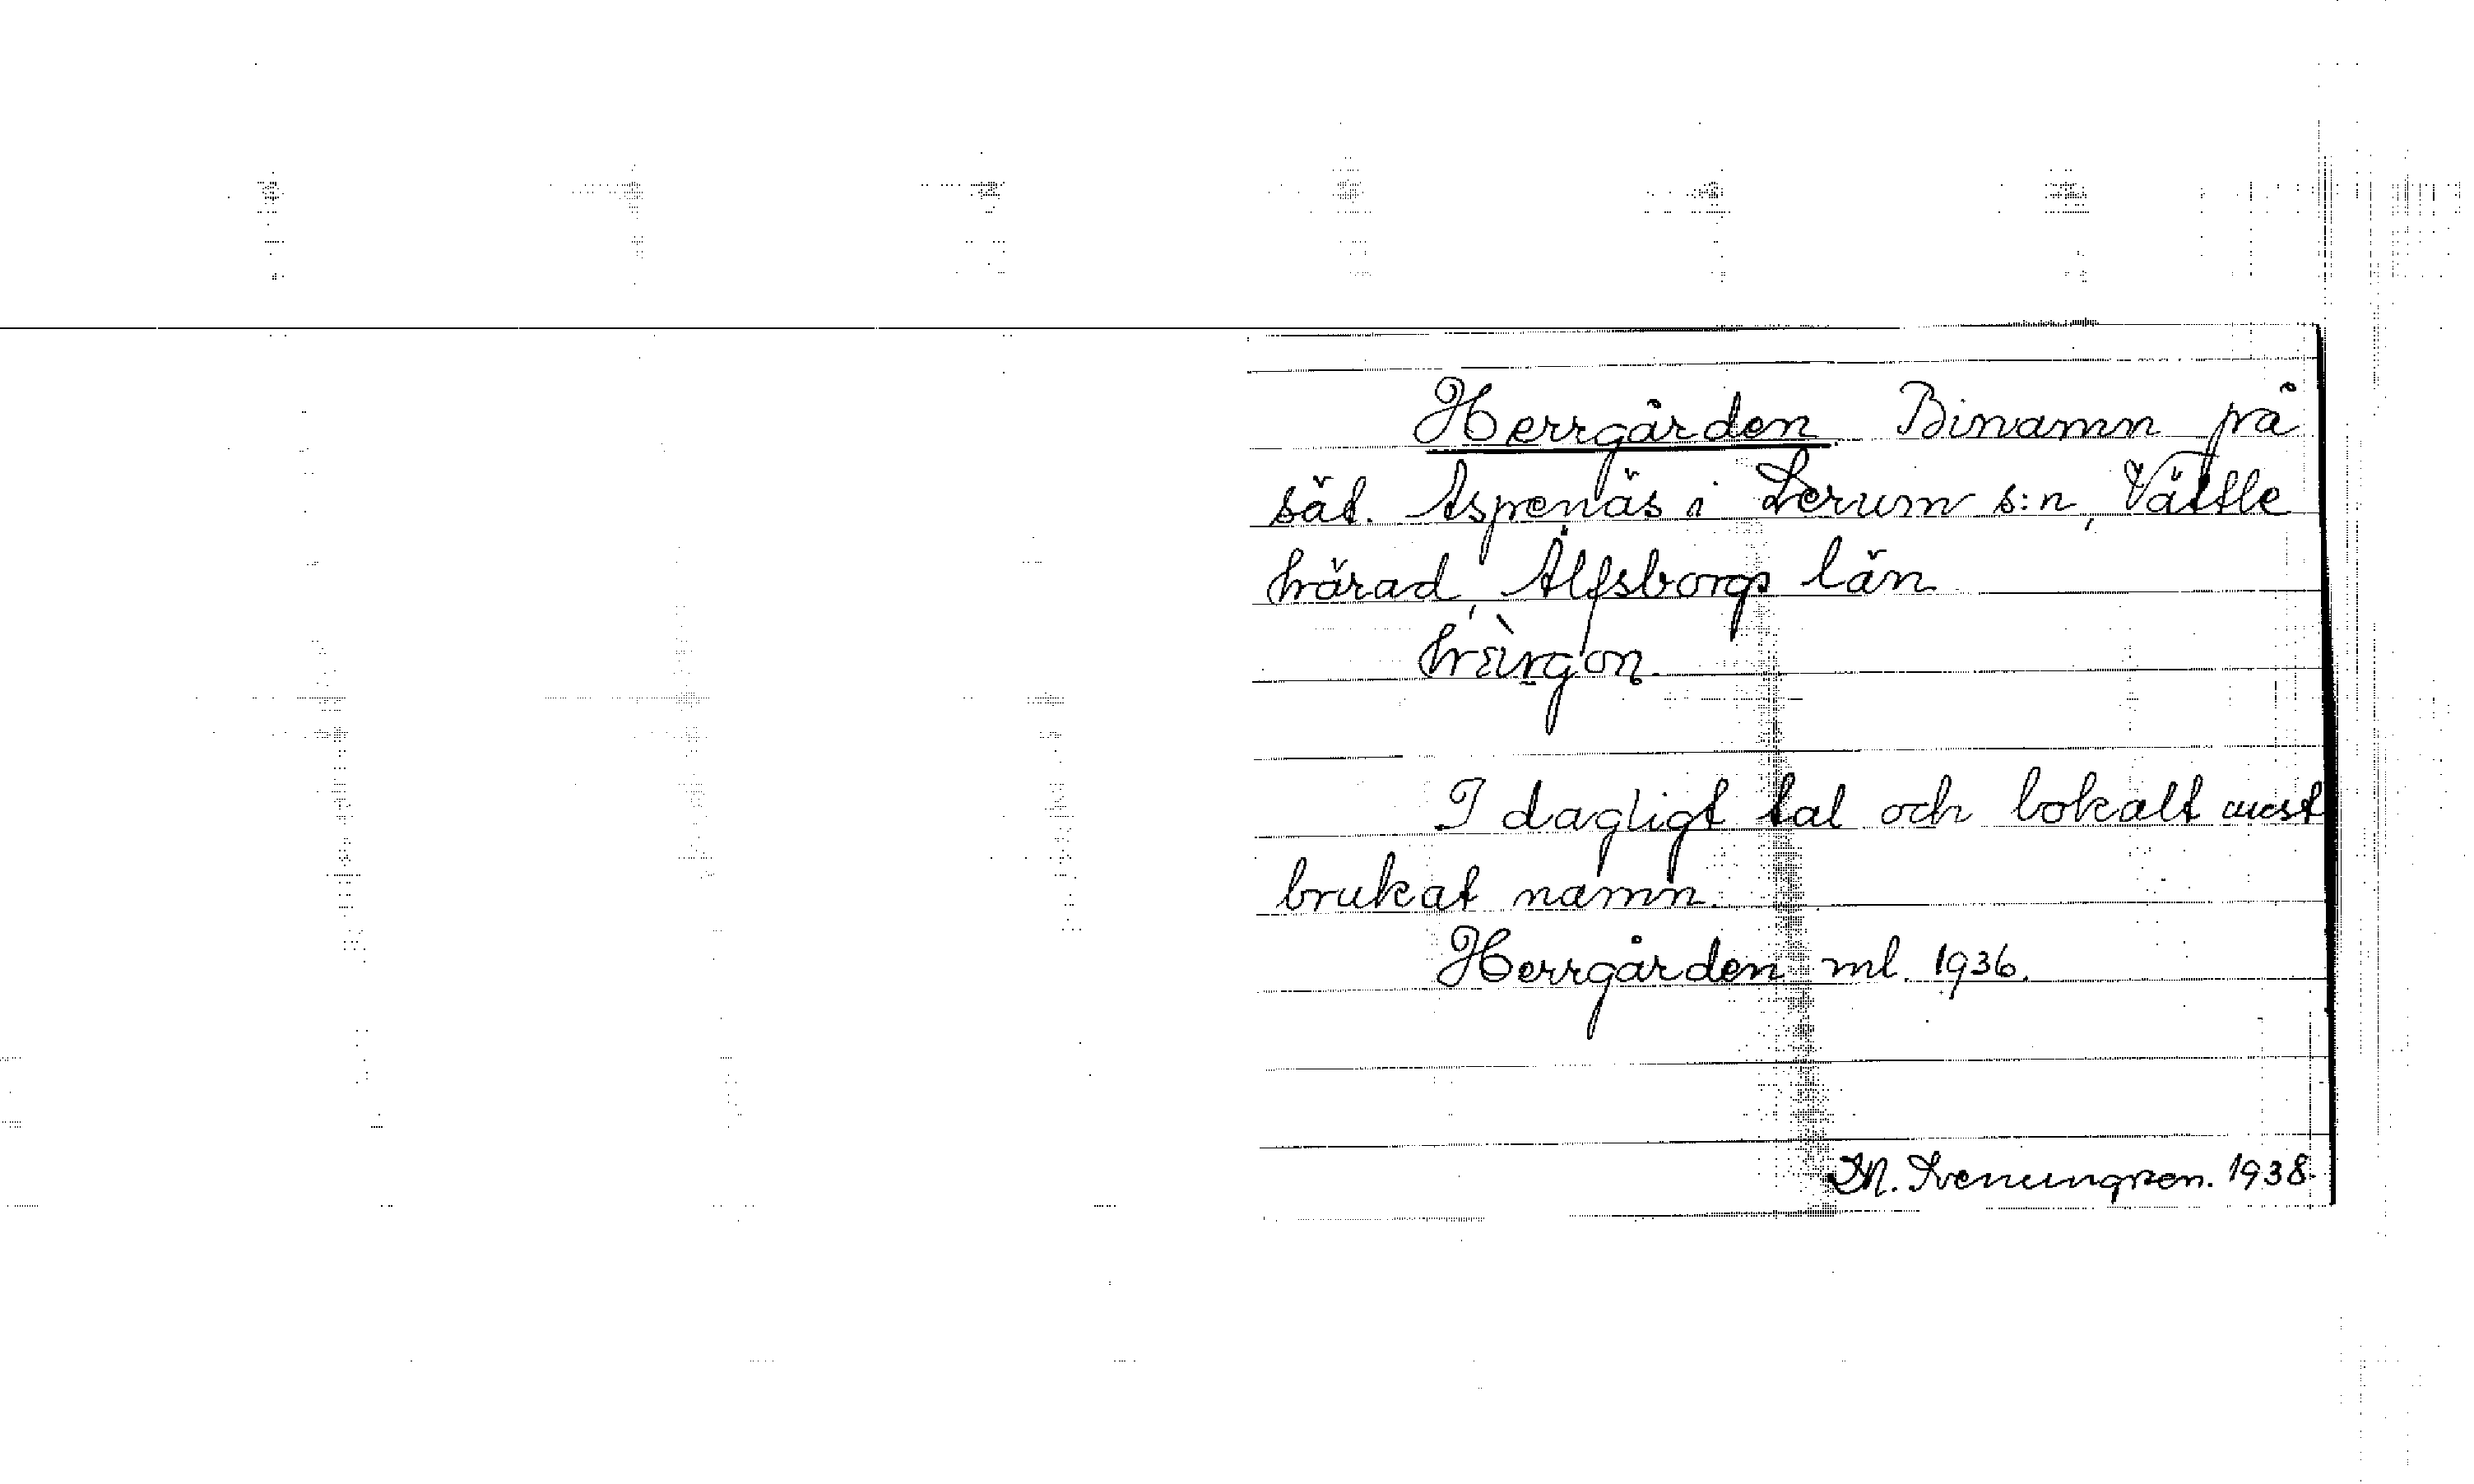 Herrgården. Binamn på
sät. Aspenäs i Lerum s:n, Vättle
härad, Älfsborgs län
I dagligt tal och lokalt mest
brukat namn.
Herrgården ml. 1936.
1938.